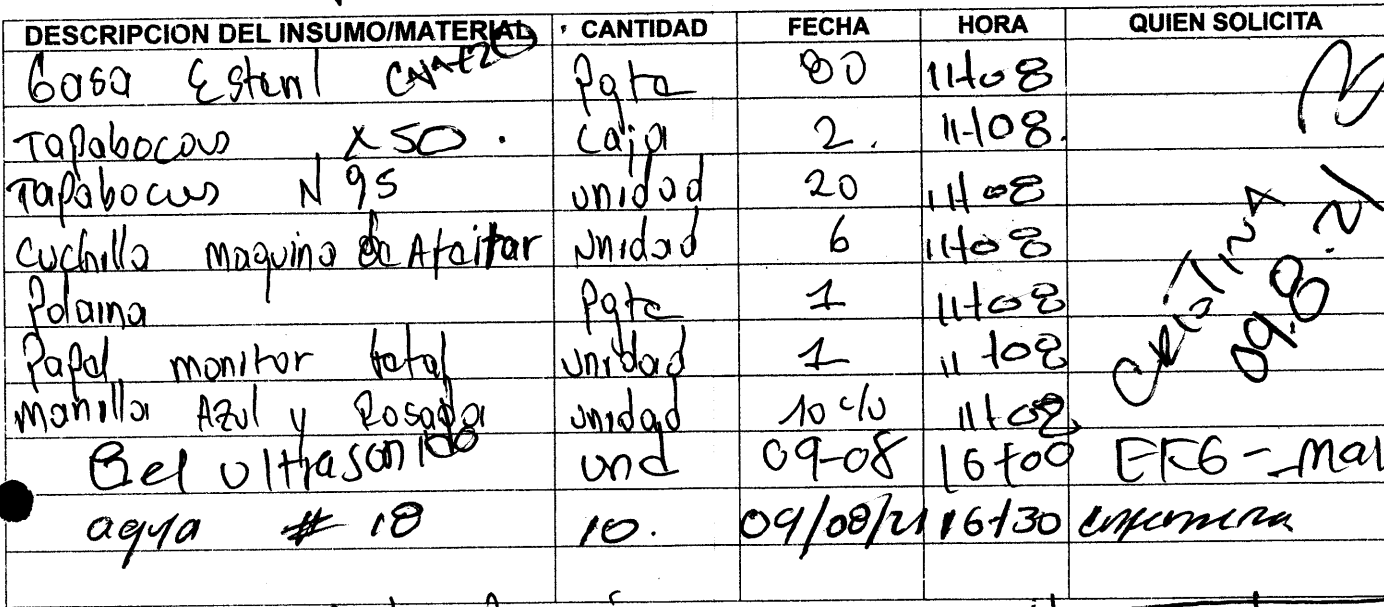 DESCRIPCION DEL INSUMO/MATERIAL CANTIDAD FECHA HORA QUIEN SOLICITA
Gasa Esteril Pqte 80 11+08
Tapabocas X50. Caja 2. 11+08.
Tapabocas N95 unidad 20 11+08
Cuchilla maquina de Afeitar unidad 6 11+08
Polaina Pqte 1 11+08
Papel monitor fetal unidad 1 11+08
manilla Azul y Rosada unidad 10 c/u 11+08
CRISTINA
09.8.21
Gel ultrasonido und 09-08 16+00
aguja # 18 10. 09/08/21 16+30 enfermera